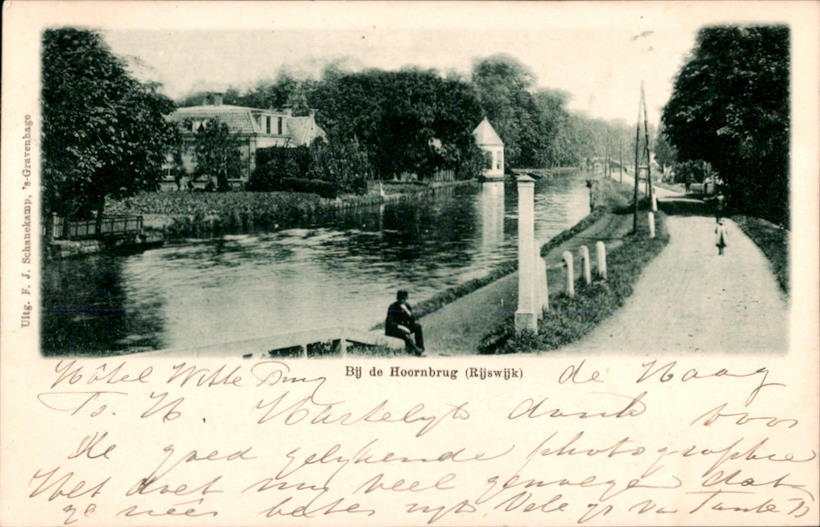 Uitg. F. J. Schanekamp, 's-Gravenhage
Bij de Hoornbrug (Rijswijk)
Hôtel Witte Brug de Haag
Hartelijk dank voor
de goed gelijkende photographie
Het doet mij veel genoegen dat
ge weer beter zijt. Vele gr van Tante